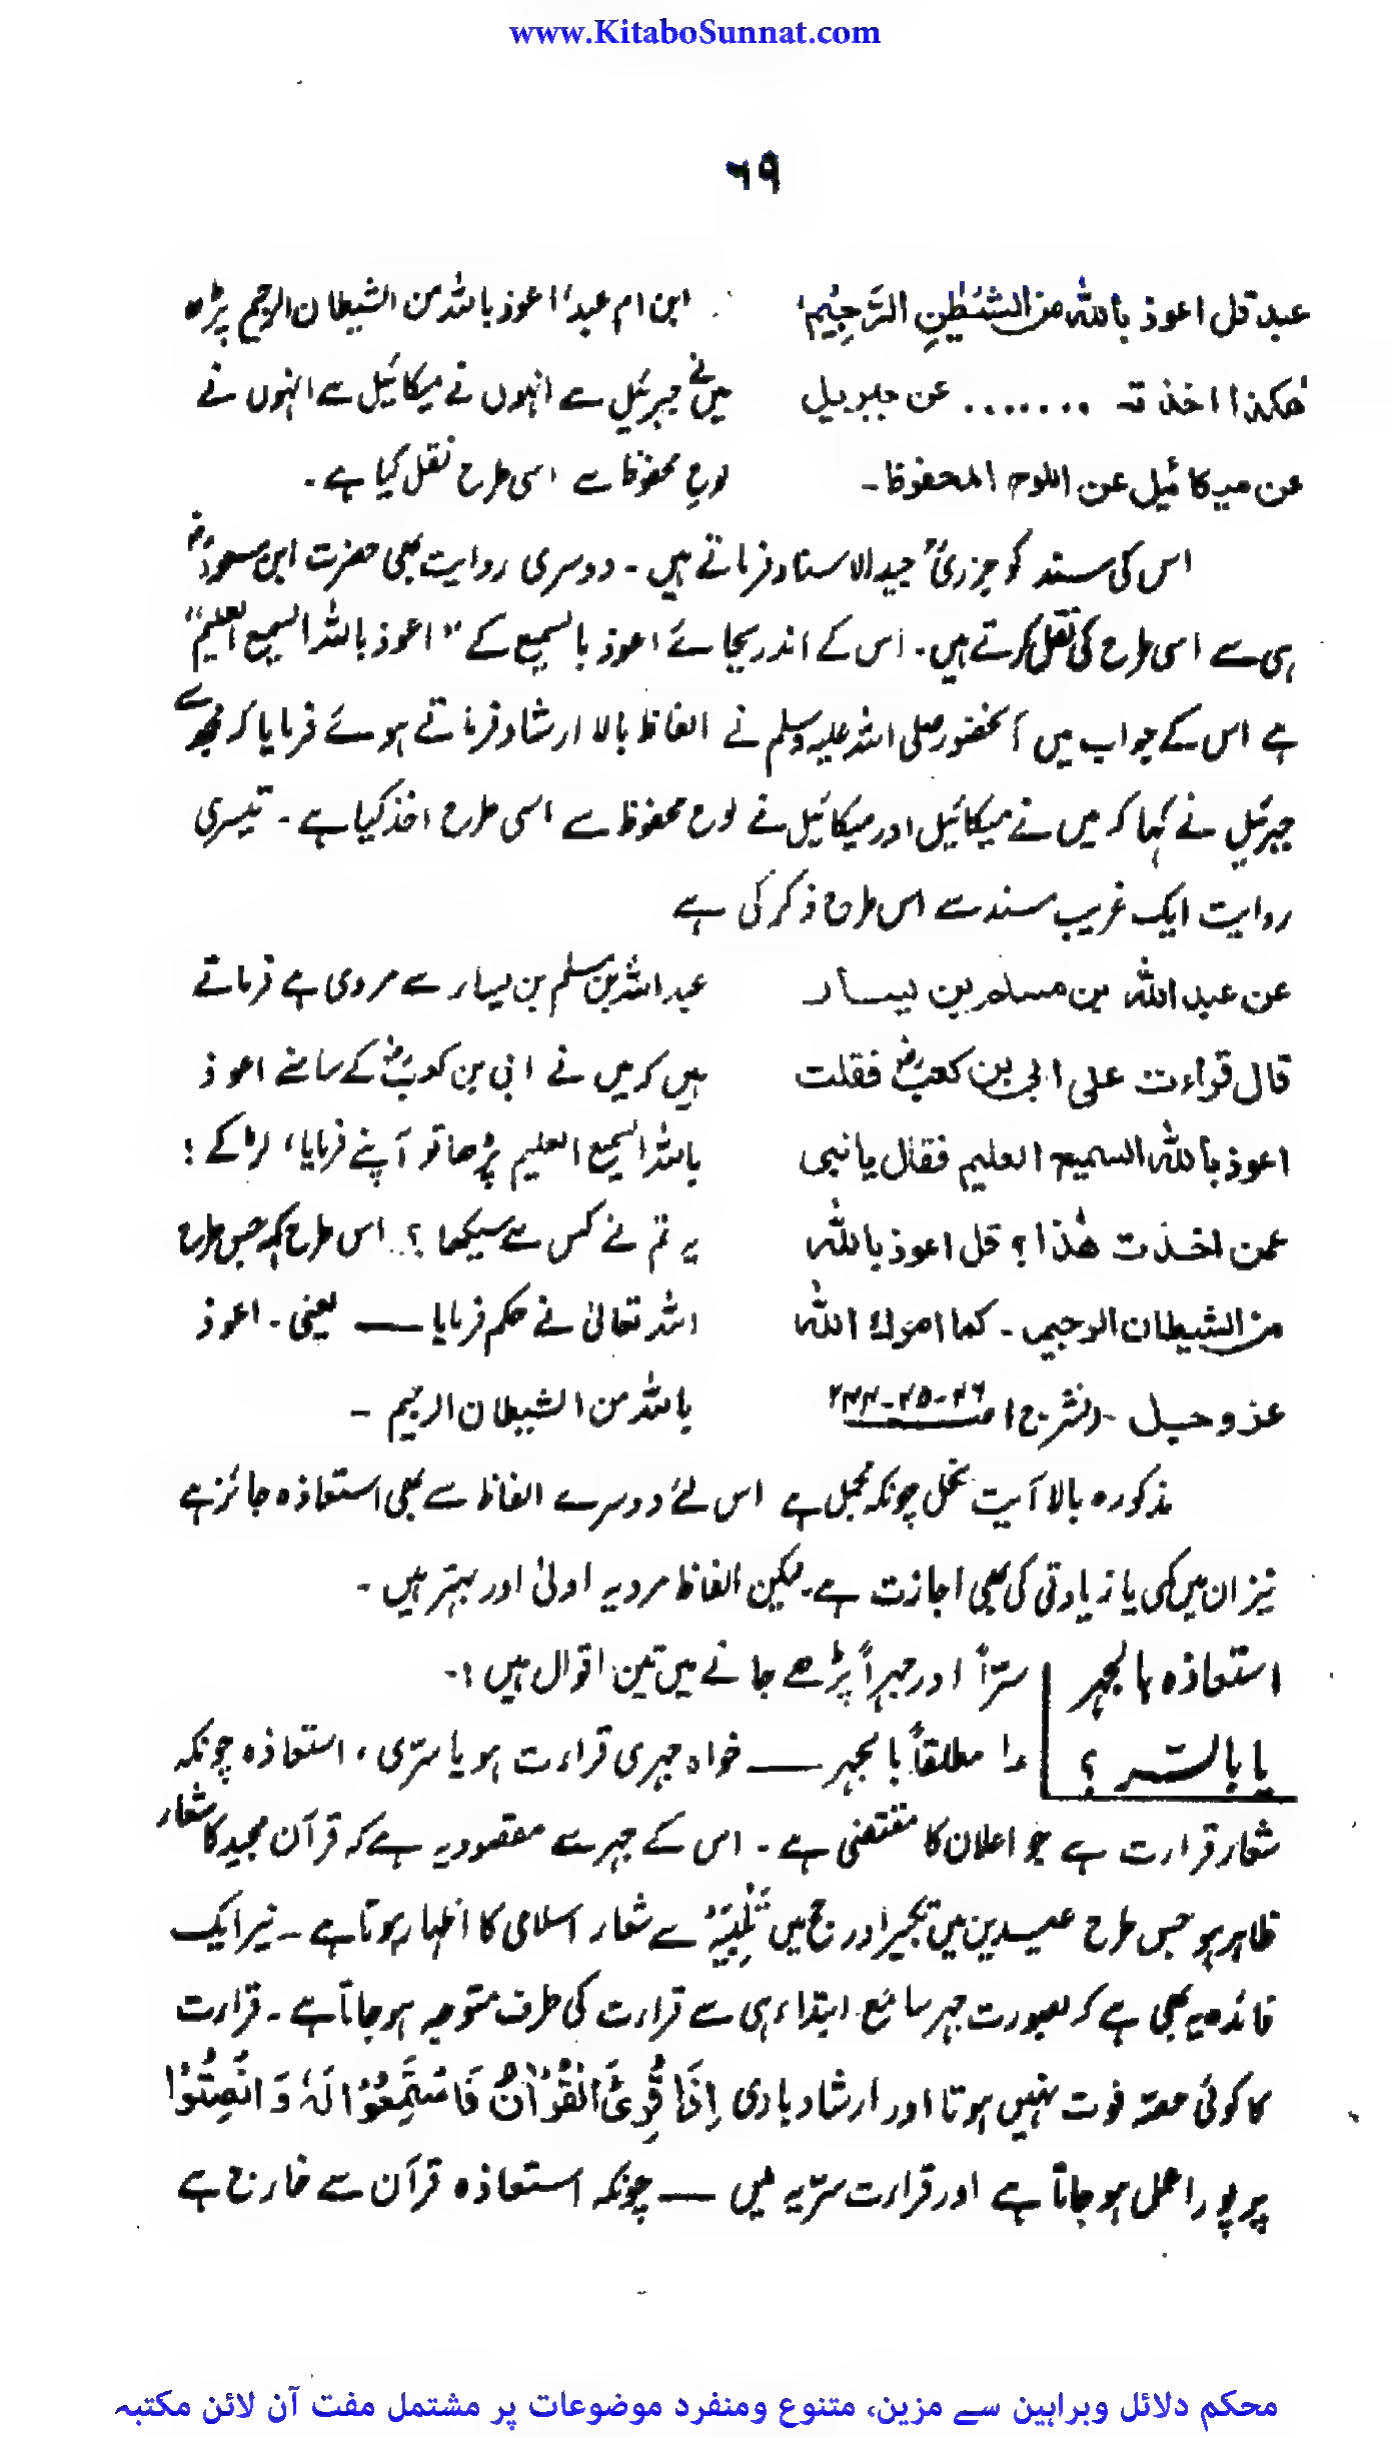 www.KitaboSunnat.com
٦٩
عبد قل اعوذ باللہ من الشیطٰنِ الرَّجِیْمِ ابن ام عبد اعوذ باللہ من الشیطان الرجیم پڑھ
ھٰکذا اخذتہ ....... عن جبریل میں نے جبرئیل سے انہوں نے میکائیل سے انہوں نے
عن میکائیل عن اللوح المحفوظ۔ لوح محفوظ سے اسی طرح نقل کیا ہے۔
اس کی سند کو جزریؒ جید الاسناد فرماتے ہیں۔ دوسری روایت بھی حضرت ابن مسعودؓ
ہی سے اسی طرح کی نقل کرتے ہیں۔ اس کے اندر بجائے اعوذ بالسمیع کے "اعوذ باللہ السمیع العلیم"
ہے اس کے جواب میں آنحضور صلی اللہ علیہ وسلم نے الفاظ بالا ارشاد فرماتے ہوئے فرمایا کہ مجھ سے
جبرئیل نے کہا کہ میں نے میکائیل اور میکائیل نے لوح محفوظ سے اسی طرح اخذ کیا ہے۔ تیسری
روایت ایک غریب سند سے اس طرح ذکر کی ہے
عن عبد اللہ بن مسلم بن یسار عبد اللہ بن مسلم بن یسار سے مروی ہے فرماتے
قال قراءت علی ابی بن کعبؓ فقلت ہیں کہ میں نے ابی بن کعبؓ کے سامنے اعوذ
اعوذ باللہ السمیع العلیم فقال یا نبی باللہ السمیع العلیم پڑھا تو آپ نے فرمایا، لڑکے!
عمن اخذت ھٰذا؟ قل اعوذ باللہ یہ تم نے کس سے سیکھا؟.. اس طرح کہہ جس طرح
من الشیطان الرجیم۔ کما امرک اللہ اللہ تعالیٰ نے حکم فرمایا ـــ یعنی۔ اعوذ
عز و جل۔ (نشر ج ١ ص باللہ من الشیطان الرجیم۔
مذکورہ بالا آیت نحل چونکہ مجمل ہے اس لئے دوسرے الفاظ سے بھی استعاذہ جائز ہے
نیز ان میں کمی یا زیادتی کی بھی اجازت ہے۔ لیکن الفاظ مرویہ اولیٰ اور بہتر ہیں۔
استعاذہ بالجہر سرّاً اور جہراً پڑھے جانے میں تین اقوال ہیں :-
یا بالسّر ؟ ۱ مطلقاً بالجہر ـــ خواہ جہری قراءت ہو یا سرّی، استعاذہ چونکہ
شعار قرارت ہے جو اعلان کا مقتضی ہے۔ اس کے جہر سے مقصود یہ ہے کہ قرآن مجید کا شعار
ظاہر ہو جس طرح عیدین میں تکبیر اور حج میں تَلْبِیَہ سے شعار اسلامی کا اظہار ہوتا ہے۔ نیز ایک
فائدہ یہ بھی ہے کہ بصورت جہر سامع ابتداء ہی سے قرارت کی طرف متوجہ ہو جاتا ہے۔ قرارت
کا کوئی حصّہ فوت نہیں ہوتا اور ارشاد باری اِذَا قُرِئَ الْقُرْاٰنُ فَاسْتَمِعُوْا لَہٗ وَ انْصِتُوْا
پر پورا عمل ہو جاتا ہے اور قرارت سرّیہ میں ـــ چونکہ استعاذہ قرآن سے خارج ہے
محکم دلائل وبراہین سے مزین، متنوع ومنفرد موضوعات پر مشتمل مفت آن لائن مکتبہ